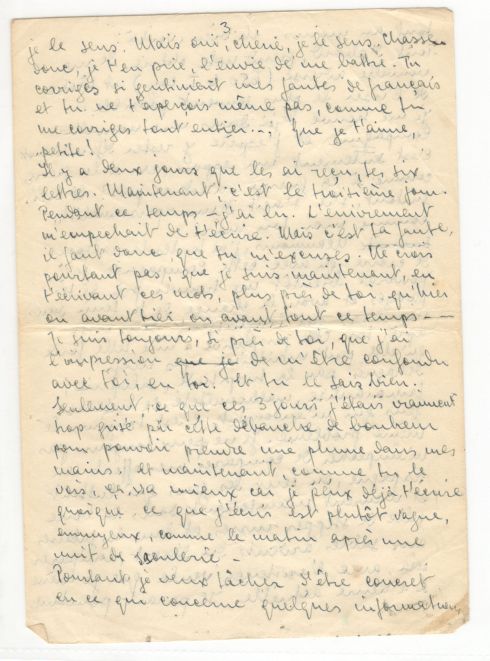 3.
je le sens. Mais oui, chérie, je le sens. Chasse
donc, je t'en prie, l'envie de me battre. Tu
corriges si gentiment mes fautes de français
et tu ne t'aperçois même pas, comme tu
me corriges tout entier... Que je t'aime,
petite!
Il y a deux jours que les ai reçu, tes six
lettres. Maintenant, c'est le troisième jour.
Pendant ce temps - j'ai lu. L'enivrement
m'empechait de t'écrire. Mais c'est ta faute,
il faut donc que tu m'excuses. Ne crois
pourtant pas que je suis maintenant, en
t'écrivant ces mots, plus près de toi, qu'hier
ou avant hier ou avant tout ce temps --
Je suis toujours si près de toi, que j'ai
l'impression que je de m'être confondu
avec toi, en toi. Et tu le sais bien.
Seulement, ce que ces 3 jours j'étais vraiment
trop grisé par cette de bonheur
pour pouvoir prendre une plume dans mes
mains. Et maintenant, comme tu le
vois, ça va mieux car je peux déjà t'écrire
quoique ce que j'écris est plutôt vague,
ennuyeux, comme le matin après une
nuit de soulerie -
Pourtant je veux tâcher d'être concret
en ce qui concerne quelques information,